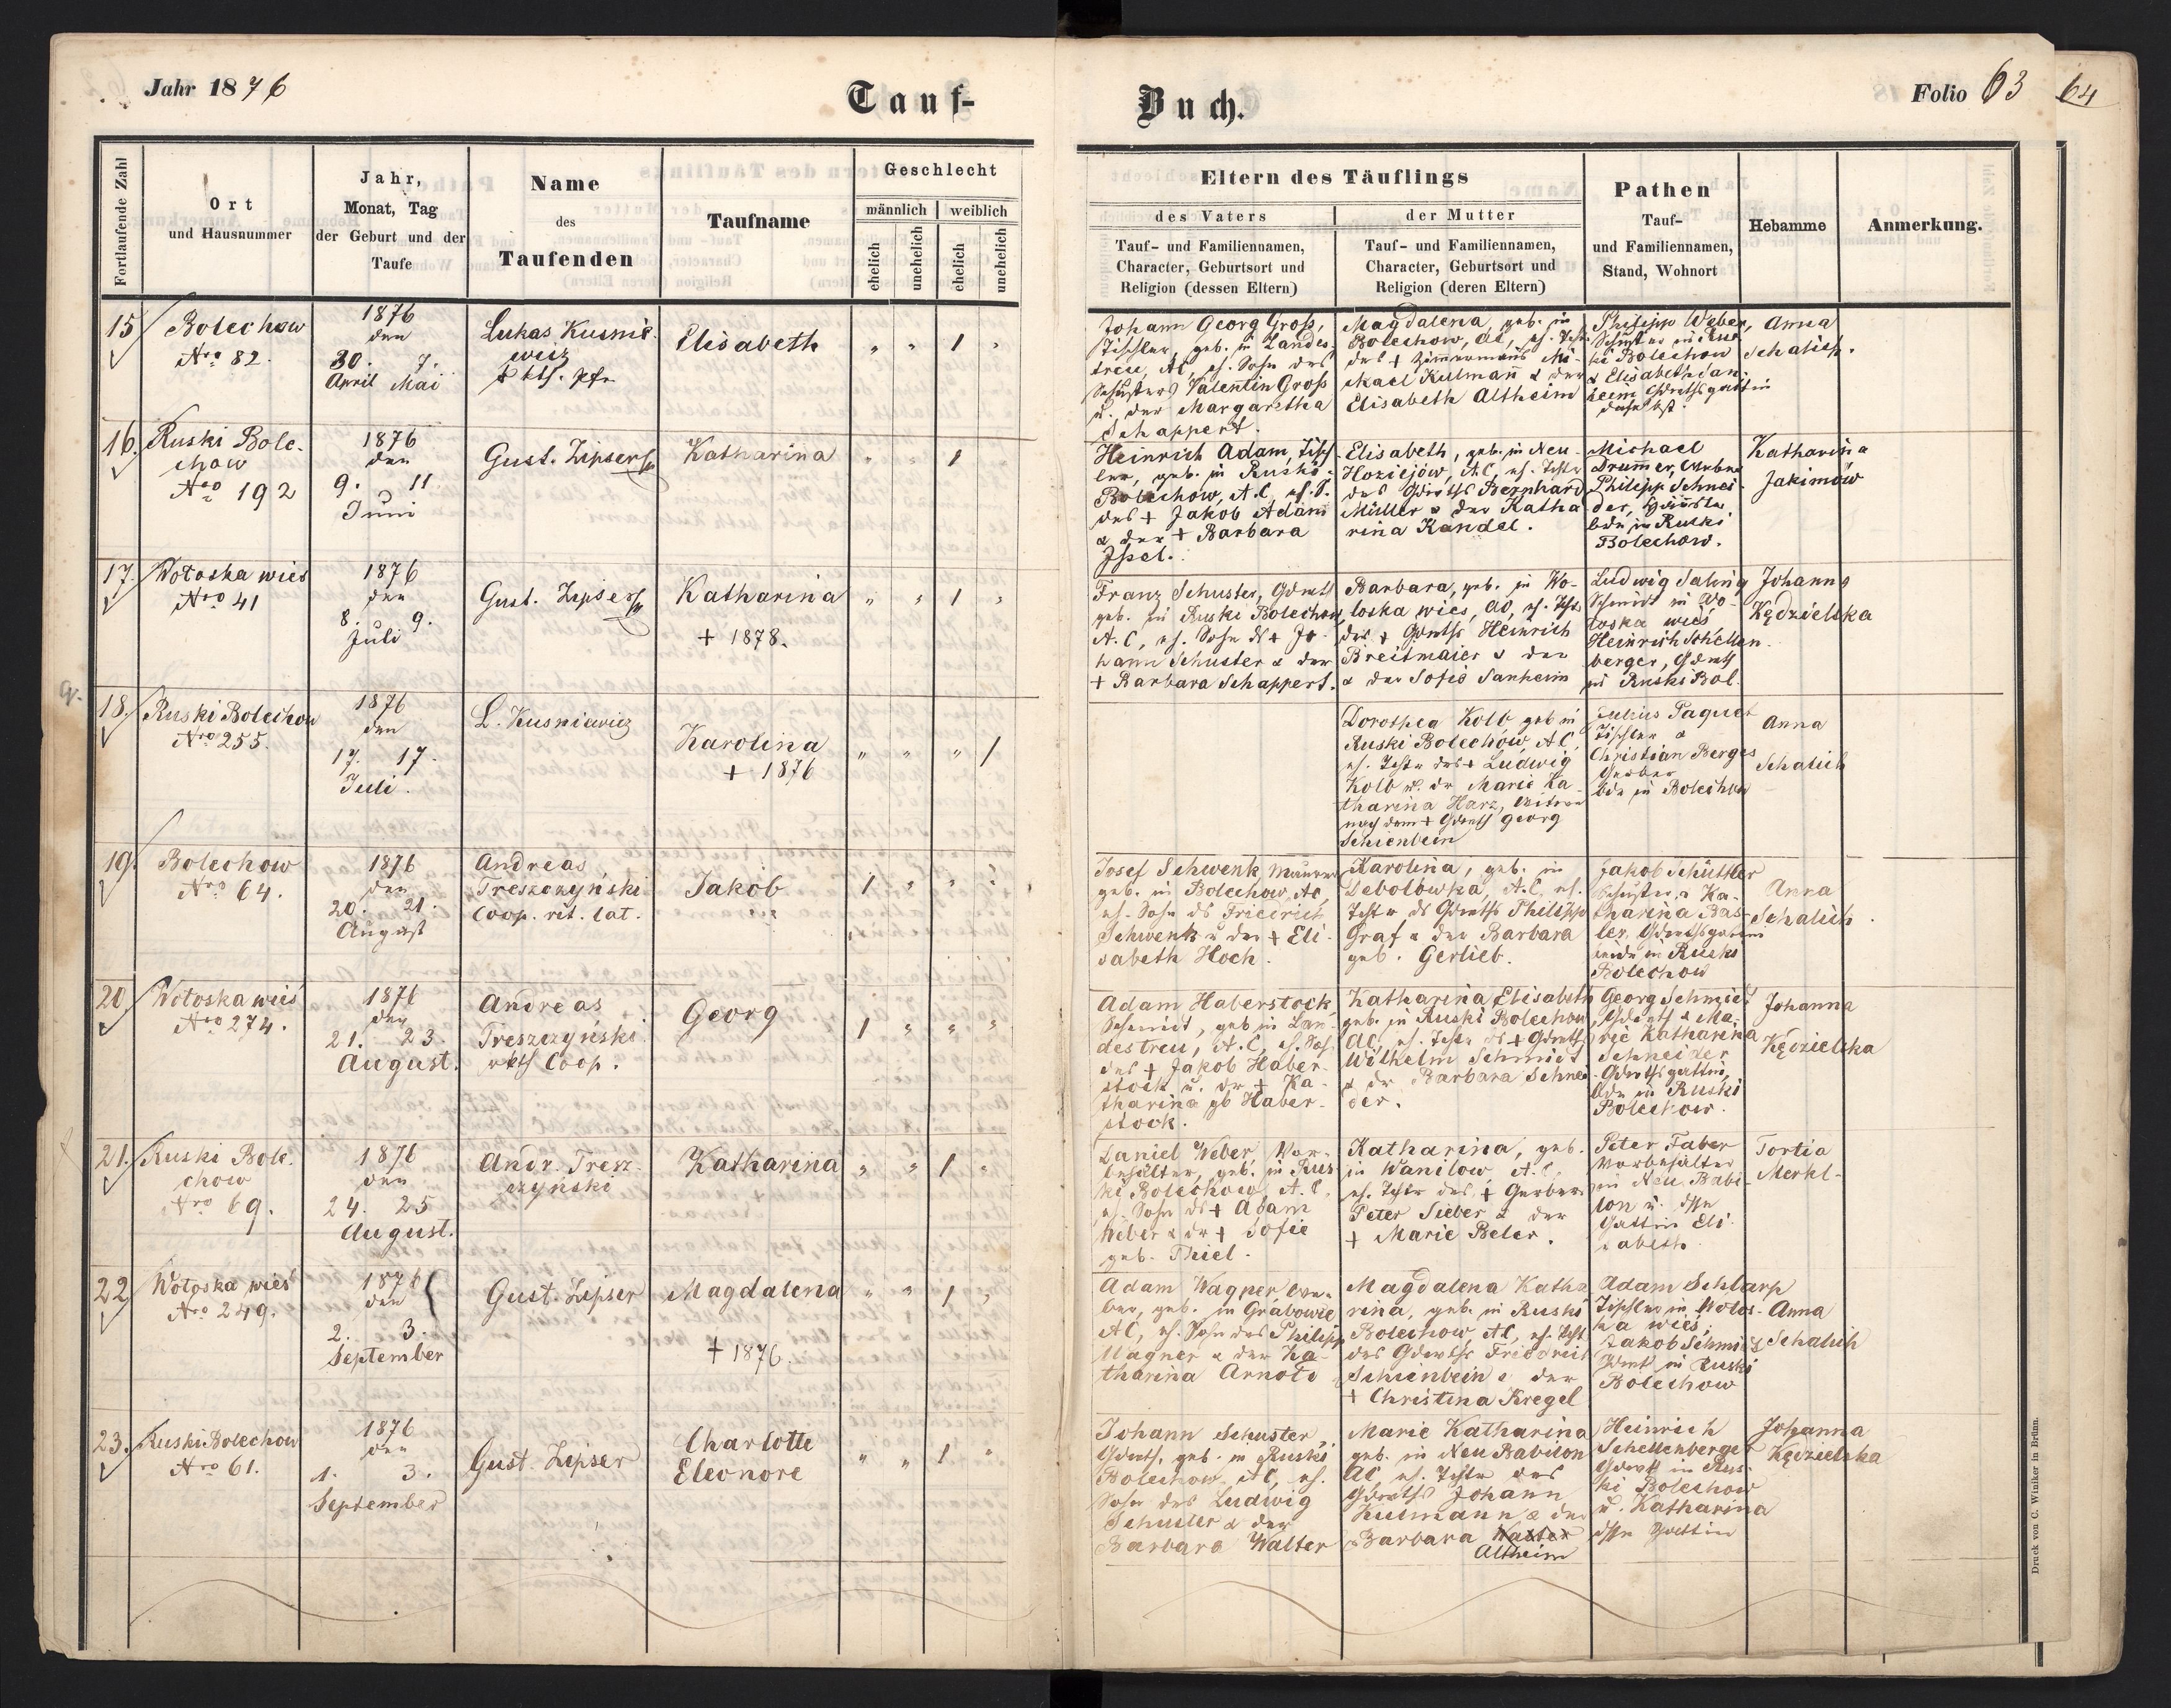 Jahr 1876
Tauf-
Buch.
Folio 63
64
Fortlaufende Zahl
Ort
und Hausnummer
Jahr,
Monat, Tag
der Geburt und der
Taufe
Name
des
Taufenden
Taufname
Geschlecht
männlich
weiblich
ehelich
unehelich
ehelich
unehelich
Eltern des Täuflings
des Vaters
Tauf- und Familiennamen,
Character, Geburtsort und
Religion (dessen Eltern)
der Mutter
Tauf- und Familiennamen,
Character, Geburtsort und
Religion (deren Eltern)
Pathen
Tauf-
und Familiennamen,
Stand, Wohnort
Hebamme
Anmerkung.
15
Bolechow
Nro 82.
1876
den
30. 7.
April Mai
Lukas Kusnie
wicz
Elisabeth
" " 1 "
Johann Georg Groß,
Tischler, geb. in Landes-
treu, AC, eh. Sohn des
Schusters Valentin Gross
u. der Margaretha
Schappert.
Magdalena, geb. in
Bolechow, AC, eh. Tcht
des + Zimmermanns Mi-
chael Kulmann & der
Elisabeth Altheim
Philipp Weber,
Schuster in Rus
ki Bolechow
& Elisabeth San-
heim Gdrthsgattin
daselbst.
Anna
Schalich.
16.
Ruski Bole-
chow
Nro 192
1876
den
9. 11.
Juni
Gust. Zipser
Katharina
" " 1 "
Heinrich Adam, Tisch
ler, geb. in Ruski-
Bolechow, A.C, eh. S.
des + Jakob Adam
& der + Barbara
Issel.
Elisabeth, geb. in Neu-
Hoziejów, A.C, eh. Tchtr
des Gdrths Bernhard
Müller & der Katha
rina Kandel.
Michael
Drummer, Gerber
Philipp Schnei-
der,
bde in Ruski
Bolechow.
Katharina
Jakimów
17.
Wołoska wieś
Nro 41
1876
den
8. 9.
Juli
Gust. Zipser
Katharina
+ 1878.
" " 1 "
Franz Schuster, Gdrth
geb. in Ruski Bolechow
A.C, eh. Sohn ds + Jo-
hann Schuster & der
+ Barbara Schappert.
Barbara, geb. in Wo-
loska wies, AC, eh. Tcht
des + Gdrths Heinrich
Breitmaier & der
& der Sofie Sanheim
Ludwig Saling
Schmidt in Wo-
łoska wieś
Heinrich Schellen
berger, Gdrth
in Ruski Bol.
Johanna
Kędzielska
18.
Ruski Bolechow
Nro 255.
1876
den
17. 17.
Juli.
L. Kusniewicz
Karolina
+ 1876
" " " 1
Dorothea Kolb geb in
Ruski Bolechów, AC,
eh. Tchtr des + Ludwig
Kolb u. dr Marie Ka
tharina Harz, Witwe
nach dem + Gdrth Georg
Schienbein
Julius Paquet
Tischler &
Christian Berges
Gerber
bde in Bolechow
Anna
Schalich
19.
Bolechow
Nro 64.
1876
den
20. 21.
August
Andreas
Treszczyński
Coop. rit. lat.
Jakob
1 " " "
Josef Schwenk, Maurer
geb. in Bolechow, AC,
eh. Sohn ds Friedrich
Schwenk u der + Eli-
sabeth Hoch.
Karolina, geb. in
Debolówka, A.C, eh.
Tchtr ds Gdrths Philipp
Graf & der Barbara
geb. Gerlieb.
Jakob Schüttler
Schuster & Ka-
tharina Bas-
ler, Gdrthsgattin
beide in Ruski
Bolechow
Anna
Schalich.
20.
Wołoska wieś
Nro 274.
1876
den
21. 23.
August.
Andreas
Treszczyński
Coop.
Georg
1 " " "
Adam Haberstock,
Schmidt, geb in Lan-
destreu, A.C, eh. Sohn
des + Jakob Haber-
stock u. dr + Ka-
tharina gb Haber-
stock.
Katharina Elisabeth
geb. in Ruski Bolechow,
AC, eh. Tchtr ds + Gdrths
Wilhelm Schmidt
& dr Barbara Schnei
der.
Georg Schmidt
Gdrth & Ma-
rie Katharina
Schneider
Gdrthsgattin,
bde in Ruski
Bolechow.
Johanna
Kędzielska
21.
Ruski Bole-
chow
Nro 69.
1876
den
24. 25
August.
Andr. Tresz-
czyński
Katharina
" " 1 "
Daniel Weber, Vor-
behälter, geb. in Rus
ki Bolechow, A.C,
eh. Sohn ds + Adam
Weber & dr + Sofie
geb. Thiel.
Katharina, geb.
in Wanilow, A.C,
eh. Tchtr des + Gerbers
Peter Sieber & der
+ Marie Beler.
Peter Faber
Vorbehälter
in Neu Babi-
lon u. dssn
Gattin Eli
sabeth
Tortia
Merkl-
22.
Wołoska wieś
Nro 249.
1876
den
2. 3.
September
Gust. Zipser
Magdalena
+ 1876.
" " 1 "
Adam Wagner Ger-
ber, geb. in Grabowie
AC, eh. Sohn des Philipp
Wagner & der Ka-
tharina Arnold
Magdalena Katha
rina, geb. in Ruski
Bolechow, AC, eh. Tcht
des Gdrths Friedrich
Schienbein & der
+ Christina Kregel
Adam Schlarp
Tischler in Wolos-
ka wies,
Jakob Schmidt
Gdrth in Ruski
Bolechow
Anna
Schalich
23.
Ruski Bolechow
Nro 61.
1876
den
1. 3.
September
Gust. Zipser
Charlotte
Eleonore
" " 1 "
Johann Schuster,
Gdrth, geb. in Ruski
Bolechow, AC, eh.
Sohn des Ludwig
Schuster & der
Barbara Walter
Marie Katharina
geb. in Neu Babilon
AC, eh. Tchtr des
Gdrths Johann
Kulmann & der
Barbara Walter
Altheim
Heinrich
Schellenberger
Gdrth in Rus-
ki Bolechow
u. Katharina
dssn Gattin
Johanna
Kędzielska
Druck von C. Winiker in Brünn.